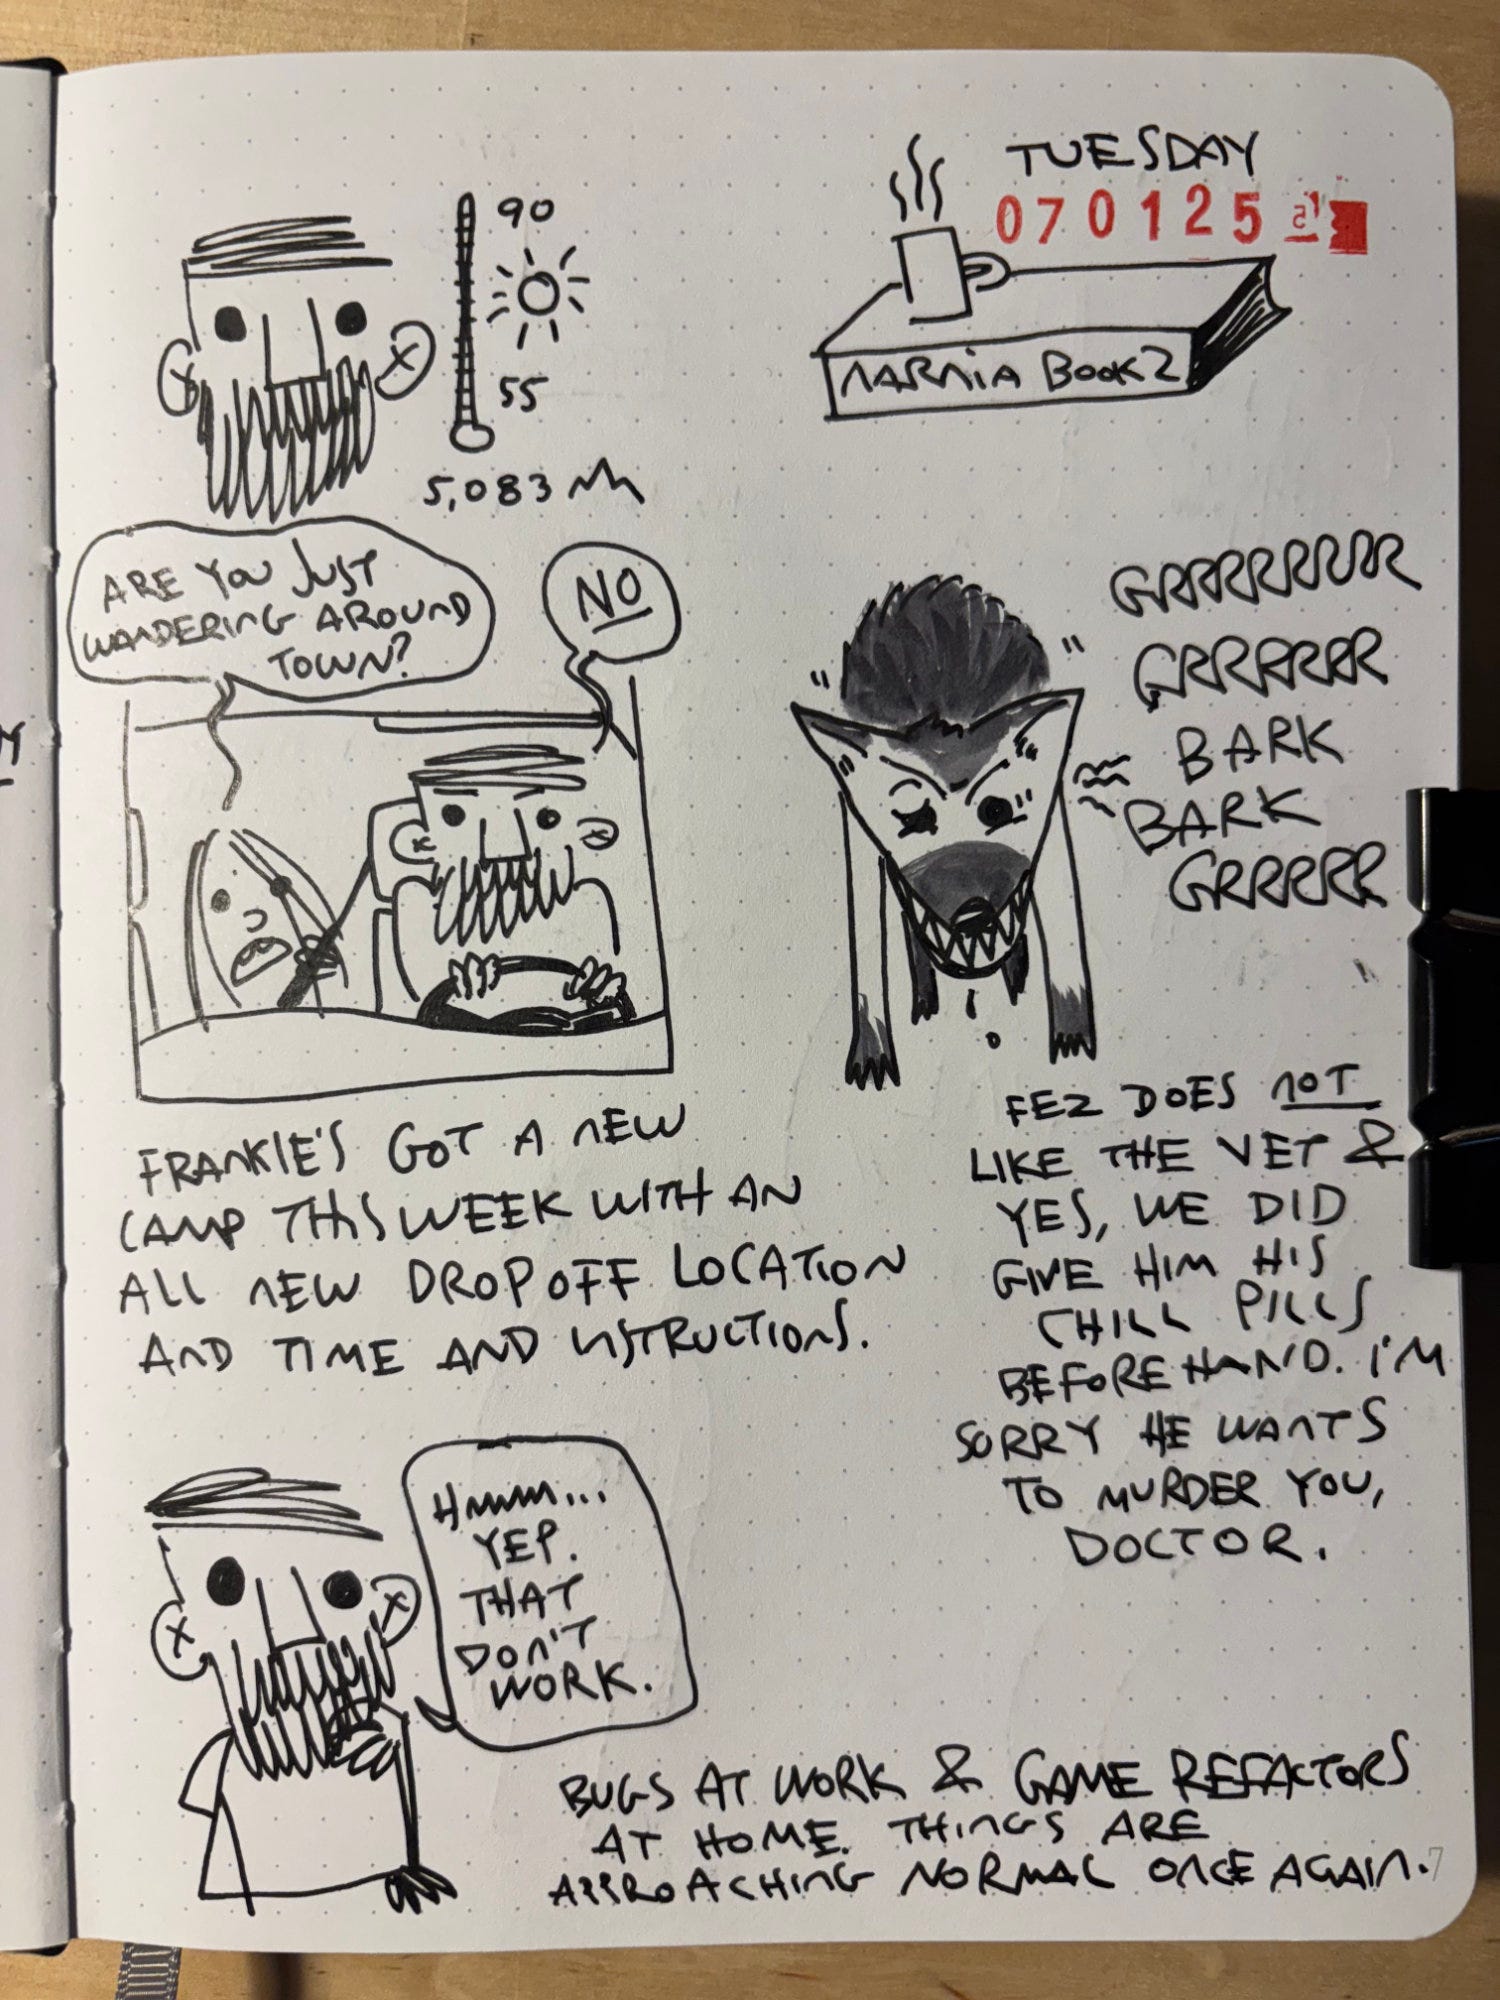 TUESDAY
070125
90
55
5,083
NARNIA BOOK 2
ARE YOU JUST
WANDERING AROUND
TOWN?
NO
FRANKIE'S GOT A NEW
CAMP THIS WEEK WITH AN
ALL NEW DROP OFF LOCATION
AND TIME AND INSTRUCTIONS.
GRRRRRRRR
GRRRRRR
BARK
BARK
GRRRRR
FEZ DOES NOT
LIKE THE VET &
YES, WE DID
GIVE HIM HIS
CHILL PILLS
BEFORE HAND. I'M
SORRY HE WANTS
TO MURDER YOU,
DOCTOR.
HMMM...
YEP.
THAT
DON'T
WORK.
BUGS AT WORK & GAME REFACTORS
AT HOME. THINGS ARE
APPROACHING NORMAL ONCE AGAIN.
7